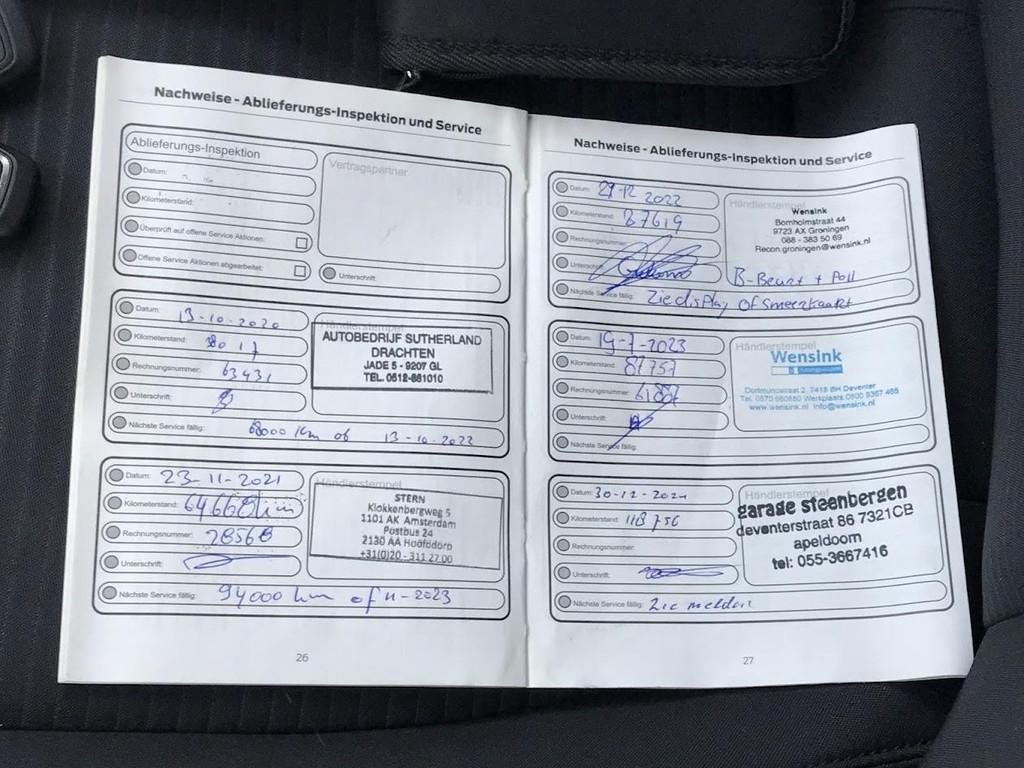 Nachweise - Ablieferungs-Inspektion und Service
Ablieferungs-Inspektion
Datum:
Kilometerstand:
Überprüft auf offene Service Aktionen:
Offene Service Aktionen abgearbeitet:
Vertragspartner
Unterschrift:
Datum: 13-10-2020
Kilometerstand:
Rechnungsnummer: 63431
Unterschrift:
Nächste Service fällig: 68000 Km of 13-10-2022
Händlerstempel
AUTOBEDRIJF SUTHERLAND
DRACHTEN
JADE 5 - 9207 GL
TEL. 0512-881010
Datum: 23-11-2021
Kilometerstand: 64668 km
Rechnungsnummer: 28568
Unterschrift:
Nächste Service fällig: 94000 km of 11-2023
Händlerstempel
STERN
Klokkenbergweg 5
1101 AK Amsterdam
Postbus 24
2130 AA Hoofddorp
+31(0)20 - 311 27.00
26
Nachweise - Ablieferungs-Inspektion und Service
Datum: 29-12 2022
Kilometerstand: 87619
Rechnungsnummer:
Unterschrift:
Nächste Service fällig: Zie display of smeerkaart
Händlerstempel
Wensink
Bornholmstraat 44
9723 AX Groningen
088 - 383 50 69
Recon.groningen@wensink.nl
B-Beurt + Poll
Datum: 19-7-2023
Kilometerstand: 87757
Rechnungsnummer:
Unterschrift:
Nächste Service fällig:
Händlerstempel
Wensink
Dortmundstraat 2, 7418 BH Deventer
www.wensink.nl info@wensink.nl
Datum: 30-12-2024
Kilometerstand: 118 756
Rechnungsnummer:
Unterschrift:
Nächste Service fällig: Zie melder
Händlerstempel
garage steenbergen
deventerstraat 86 7321CB
apeldoorn
tel: 055-3667416
27